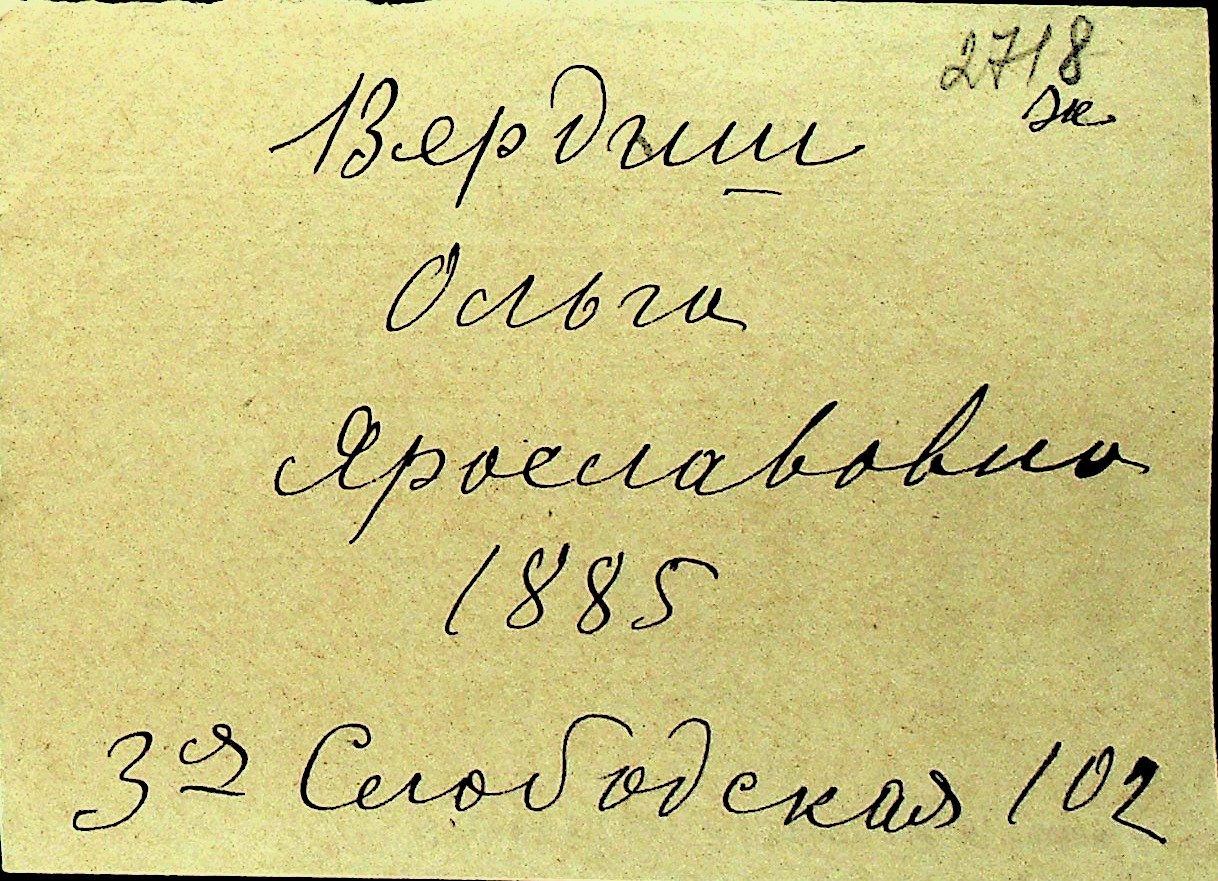 2718
ж
Вердыш
Ольга
Ярославовна
1885
3я Слободская 102